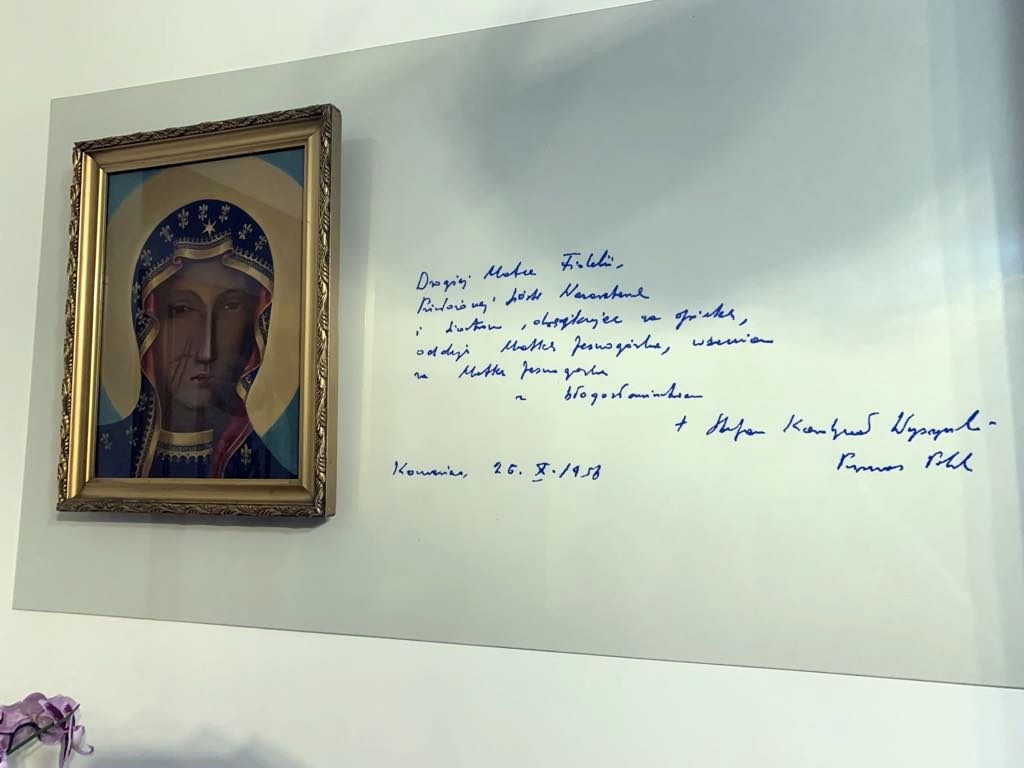 Drogiej Matce
Sióstr Nazaretanek
i dziatkom, dziękując za opiekę,
oddaję Matkę Jasnogórską, wzamian
za Matkę Jasnogórską
z błogosławieństwem
+ Stefan Kardynał Wyszyński
Prymas Polski
Komańcza, 26. X. 1956